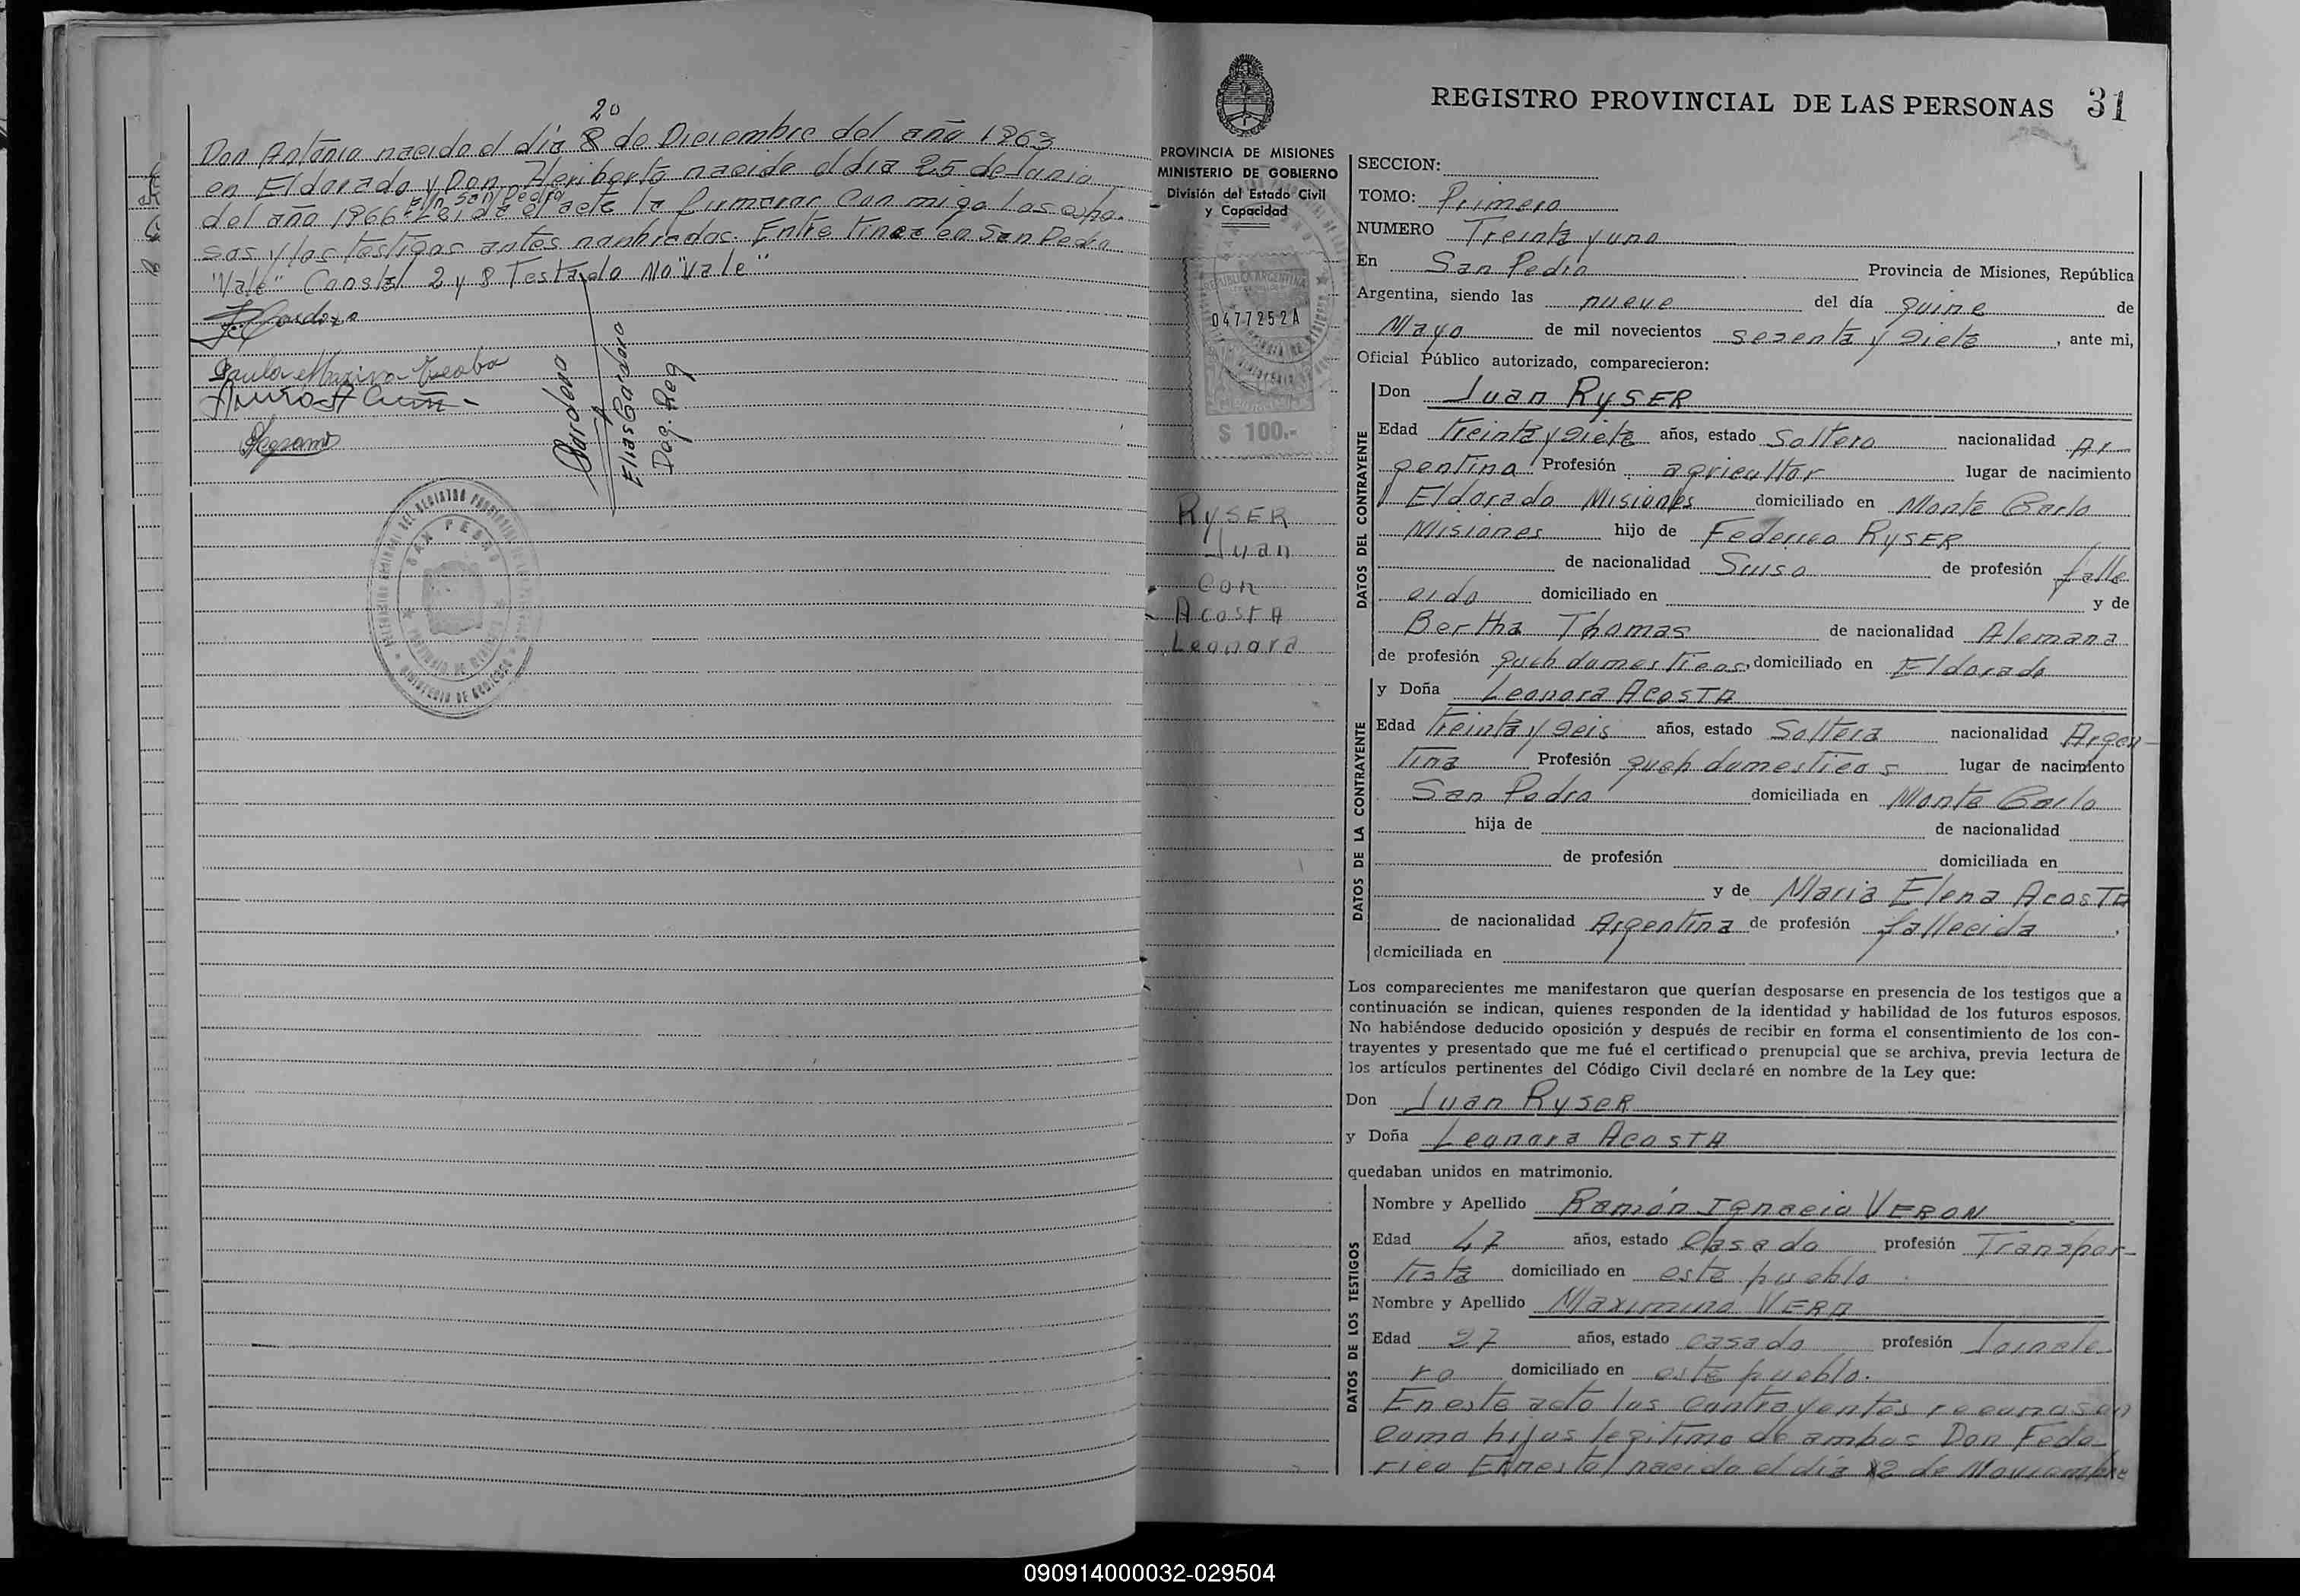 20
Don Antonio nacido el día 8 de Diciembre del año 1963
en Eldorado y Don Heriberto nacido el día 25 de Junio
en San Pedro
del año 1966 Leida el acta la firmaron con migo los espo-
sos y los testigos antes nombrados. Entre linea en San Pedro
"Vale" Consta 2 y 8 Testado No "vale"
Elias Cardozo
Reg.
REGISTRO PROVINCIAL DE LAS PERSONAS 31
PROVINCIA DE MISIONES
MINISTERIO DE GOBIERNO
División del Estado Civil
y Capacidad
REPUBLICA ARGENTINA
0477252A
$ 100.-
RySER
Juan
Con
Acosta
Leonora
SECCION:
TOMO: Primero
NUMERO Treinta y uno
En San Pedro Provincia de Misiones, República
Argentina, siendo las nueve del día quine de
Mayo de mil novecientos sesenta y siete, ante mi,
Oficial Público autorizado, comparecieron:
DATOS DEL CONTRAYENTE
Don Juan RySER
Edad treinta y siete años, estado Soltero nacionalidad Ar
gentina Profesión agricultor lugar de nacimiento
Eldorado Misiones domiciliado en Monte Carlo
Misiones hijo de Federico RySER
de nacionalidad Suiso de profesión falle
cido domiciliado en y de
Bertha Thomas de nacionalidad Alemana
de profesión queh domesticos, domiciliado en Eldorado
DATOS DE LA CONTRAYENTE
y Doña Leonora ACOSTA
Edad treinta y seis años, estado Soltera nacionalidad Argen-
tina Profesión queh domesticos lugar de nacimiento
San Pedro domiciliada en Monte Carlo
hija de de nacionalidad
de profesión domiciliada en
y de Maria Elena ACOSTA
de nacionalidad Argentina de profesión fallecida,
domiciliada en
Los comparecientes me manifestaron que querían desposarse en presencia de los testigos que a
continuación se indican, quienes responden de la identidad y habilidad de los futuros esposos.
No habiéndose deducido oposición y después de recibir en forma el consentimiento de los con-
trayentes y presentado que me fué el certificado prenupcial que se archiva, previa lectura de
los artículos pertinentes del Código Civil declaré en nombre de la Ley que:
Don Juan RySER
y Doña Leonora ACOSTA
quedaban unidos en matrimonio.
DATOS DE LOS TESTIGOS
Nombre y Apellido Ramón Ignacio VERON
Edad 47 años, estado Casado profesión Transpor-
tista domiciliado en este pueblo
Nombre y Apellido Maximino VERA
Edad 27 años, estado casado profesión Jornale
ro domiciliado en este pueblo.
En este acto los contrayentes reconosen
como hijos legitimo de ambos Don Fede-
rico Ernesto nacido el día 12 de Noviembre
090914000032-029504